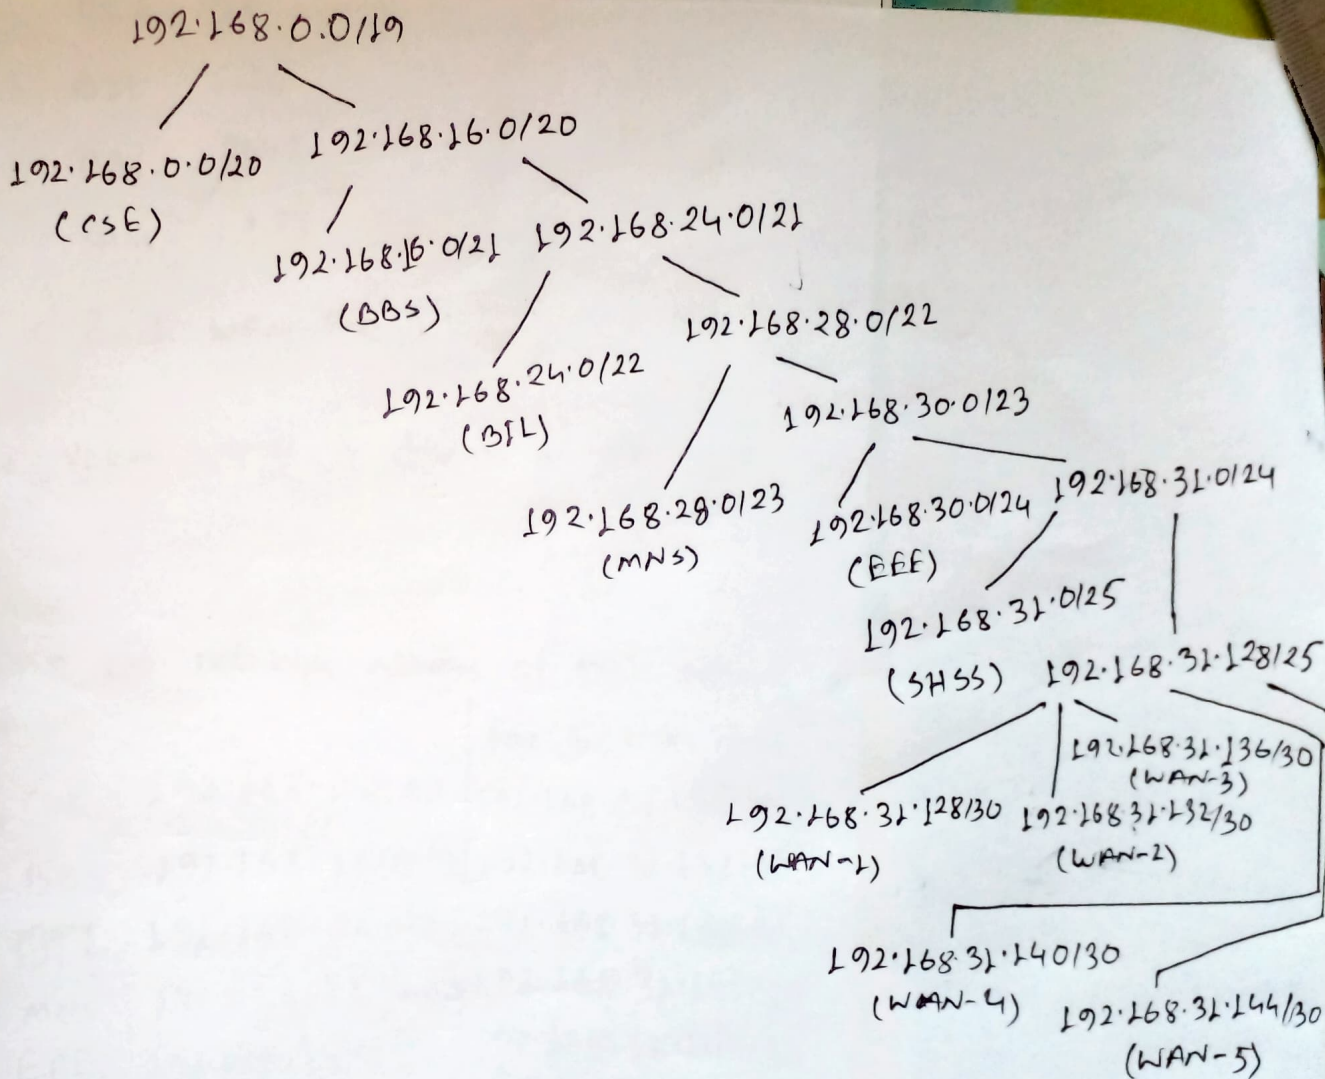 192.168.0.0/19
192.168.0.0/20
(CSE)
192.168.16.0/20
192.168.16.0/21
(BBS)
192.168.24.0/21
192.168.24.0/22
(BIL)
192.168.28.0/22
192.168.28.0/23
(MNS)
192.168.30.0/23
192.168.30.0/24
(EEE)
192.168.31.0/24
192.168.31.0/25
(SHSS)
192.168.31.128/25
192.168.31.128/30
(WAN-1)
192.168.31.132/30
(WAN-2)
192.168.31.136/30
(WAN-3)
192.168.31.140/30
(WAN-4)
192.168.31.144/30
(WAN-5)